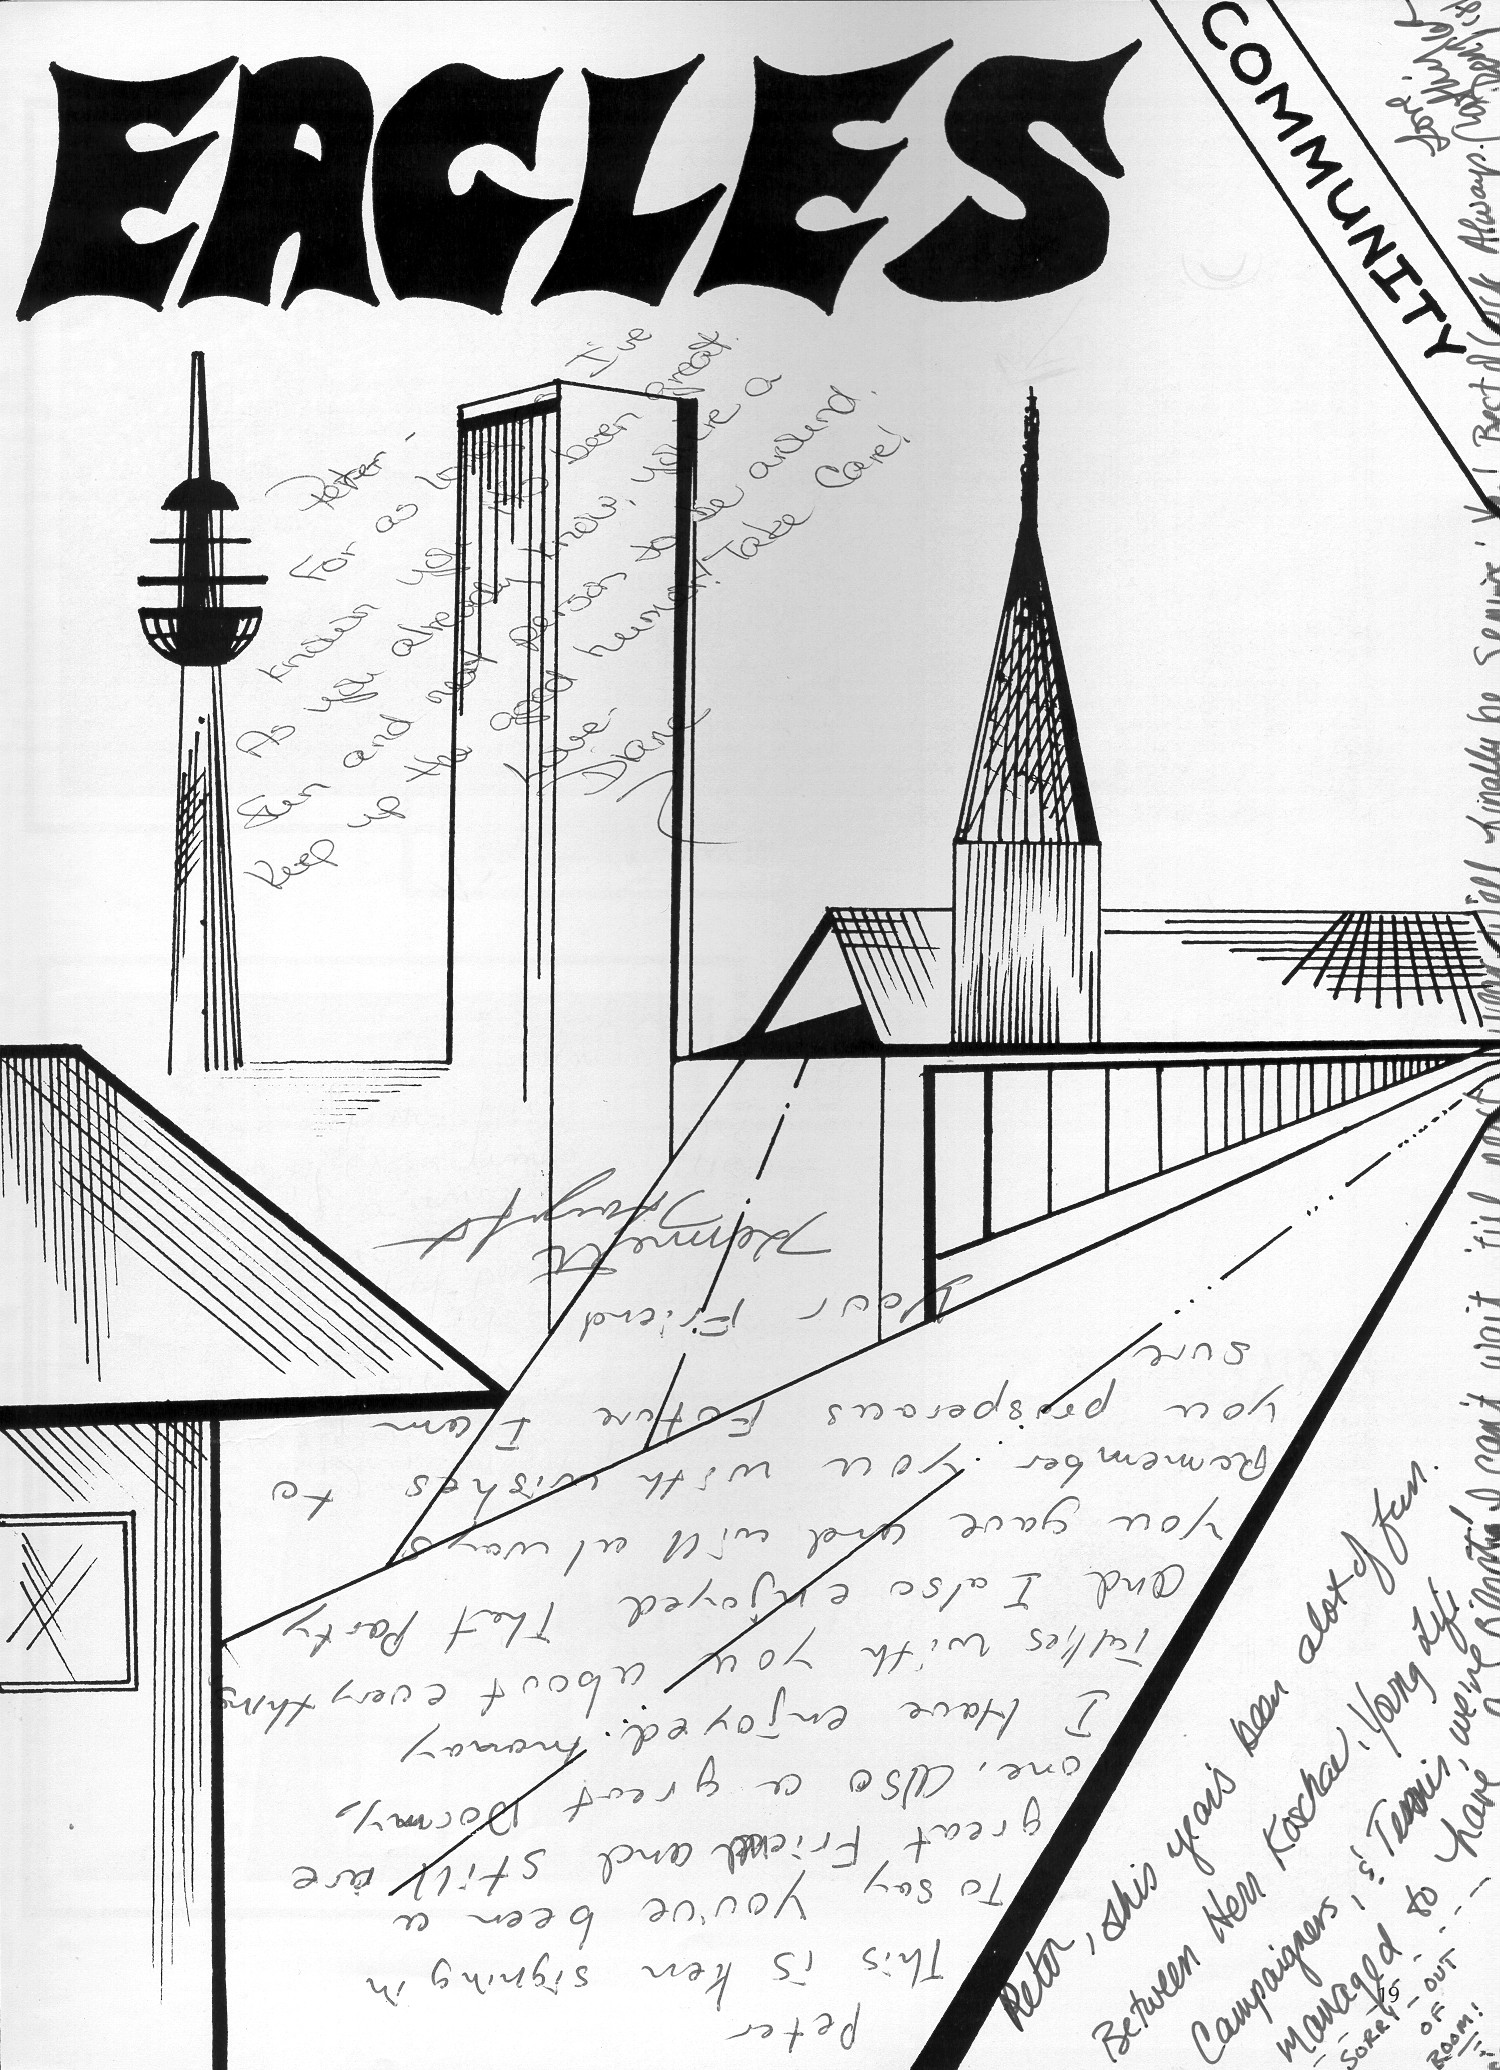 EAGLES
COMMUNITY
Peter -
For as I've
known you it's been great.
As you already know, you're a
fun and neat person to be around.
Keep up the good humor! Take Care!
Love,
Diane
Peter
This is Ken signing in
To say you've been a
great Friend and still are
one, also a great Dormy,
I Have enjoyed. many
Talkes with you about everything
and I also enjoyed That Party
you gave and will always
Remember you with wishes to
you prosperous Foture I am
sure
Your Friend
Kenneth
Peter, this year's been alot of fun.
Between Herr Koschae, Young Life
Campaigners, & Tennis, we've
managed to have a Blast! I can't wait till next year. We'll finally be Seniors! Best of Luck Always.
Love,
SORRY - OUT
OF
ROOM!
19